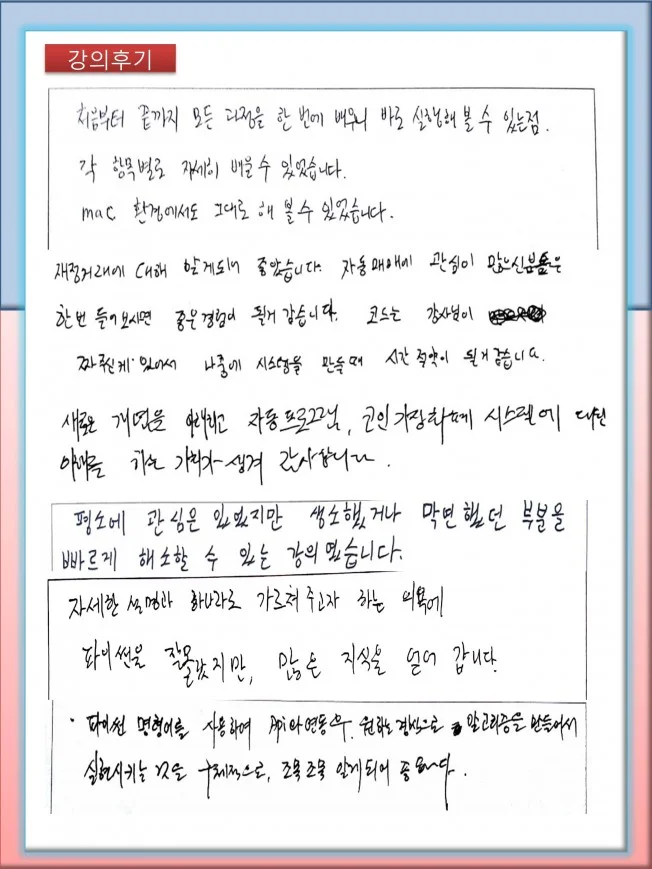 강의후기
처음부터 끝까지 모든 과정을 한 번에 배우니 바로 실행해 볼 수 있는점.
각 항목별로 자세히 배울 수 있었습니다.
mac 환경에서도 그대로 해 볼 수 있었습니다.
재정거래에 대해 알게되어 좋았습니다. 자동매매에 관심이 많으신분들은
한번 들어보시면 좋은경험이 될거 같습니다. 코드는 강사님이
짜주신게 있어서 나중에 시스템을 만들때 시간 절약이 될거 같습니다.
새로운 개념을 자동프로그램, 코인가상화폐 시스템에 대한
이해를 하는 기회가 생겨 감사합니다.
평소에 관심은 있었지만 생소했거나 막연했던 부분을
빠르게 해소할 수 있는 강의였습니다.
자세한 설명과 하나라도 가르쳐주고자 하는 의욕에
파이썬을 잘 몰랐지만, 많은 지식을 얻어 갑니다.
· 파이썬 명령어를 사용하여 Api와 연동후, 알고리즘을 만들어서
실현시키는 것을 구체적으로, 조목조목 알게되어 좋습니다.